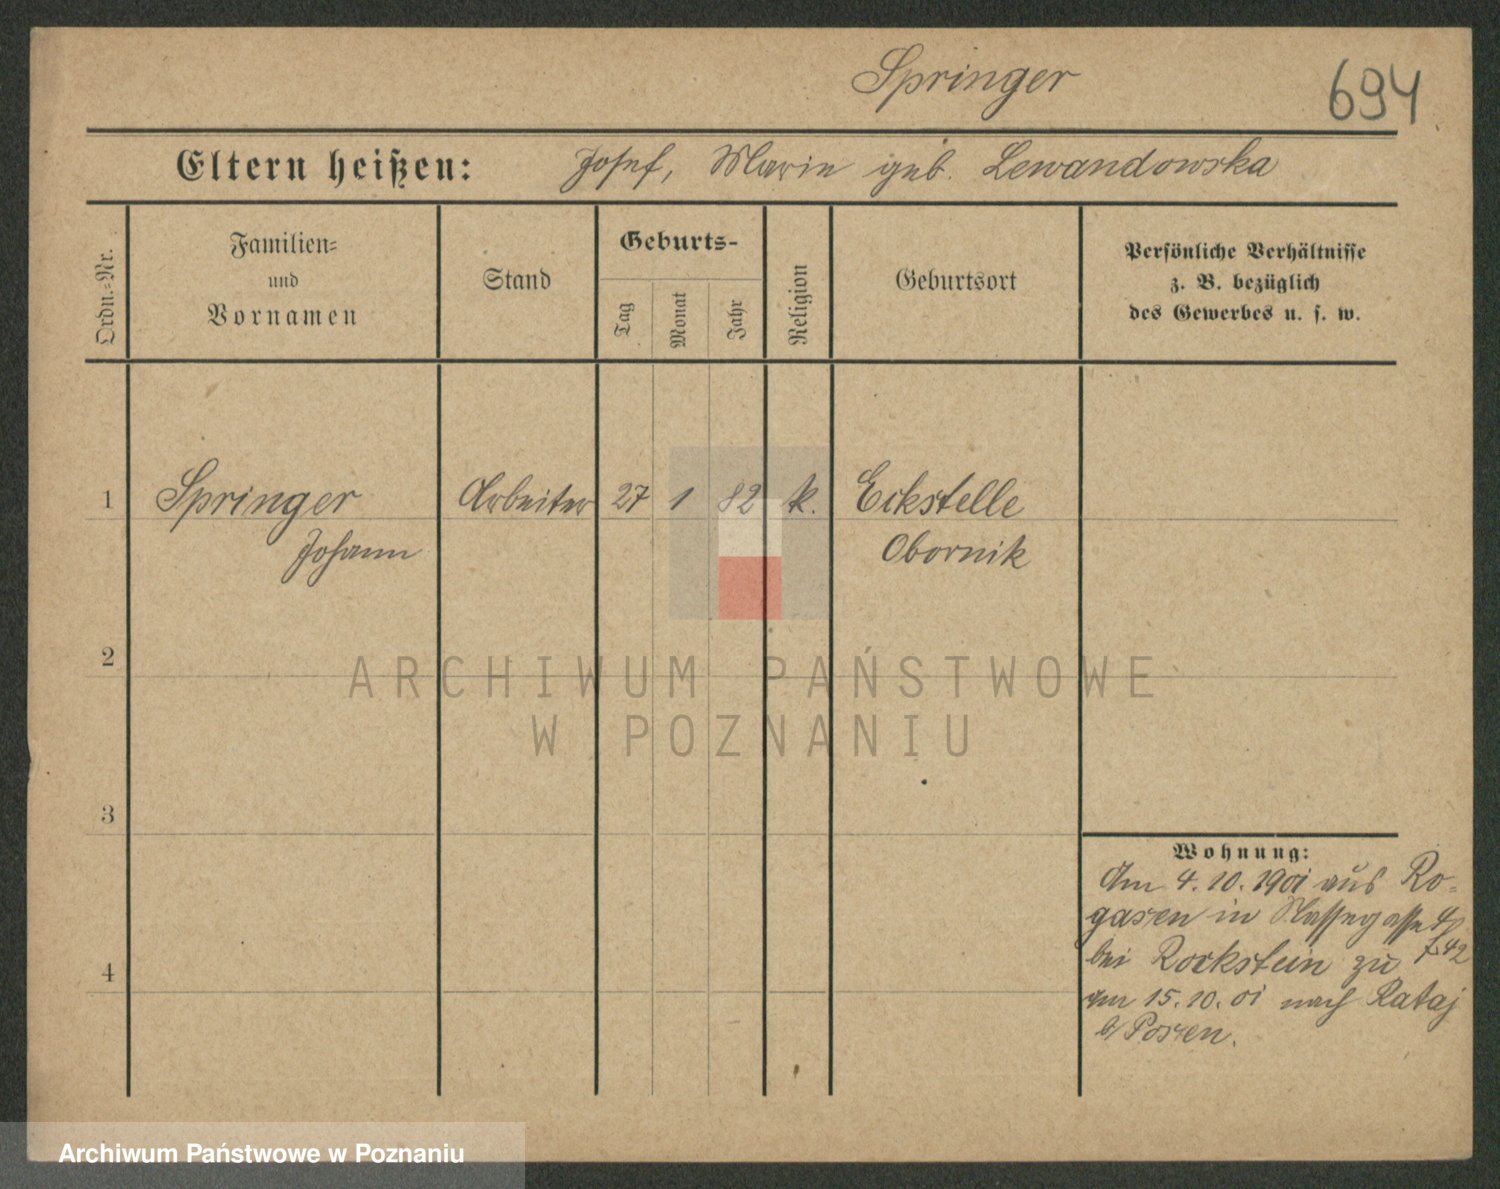 Springer
694
Eltern heißen: Josef, Marie geb. Lewandowska
Ordn.-Nr.
Familien-
und
Vornamen
Stand
Geburts-
Tag
Monat
Jahr
Religion
Geburtsort
Persönliche Verhältnisse
z. B. bezüglich
des Gewerbes u. s. w.
1 Springer Arbeiter 27 1 82 k. Eckstelle
Johann Obornik
2
3
4
ARCHIWUM PAŃSTWOWE
W POZNANIU
Wohnung:
Am 4.10.1901 aus Ro-
gasen in
bei Rockstein zu
am 15.10.01 nach Rataj
b/Posen.
Archiwum Państwowe w Poznaniu